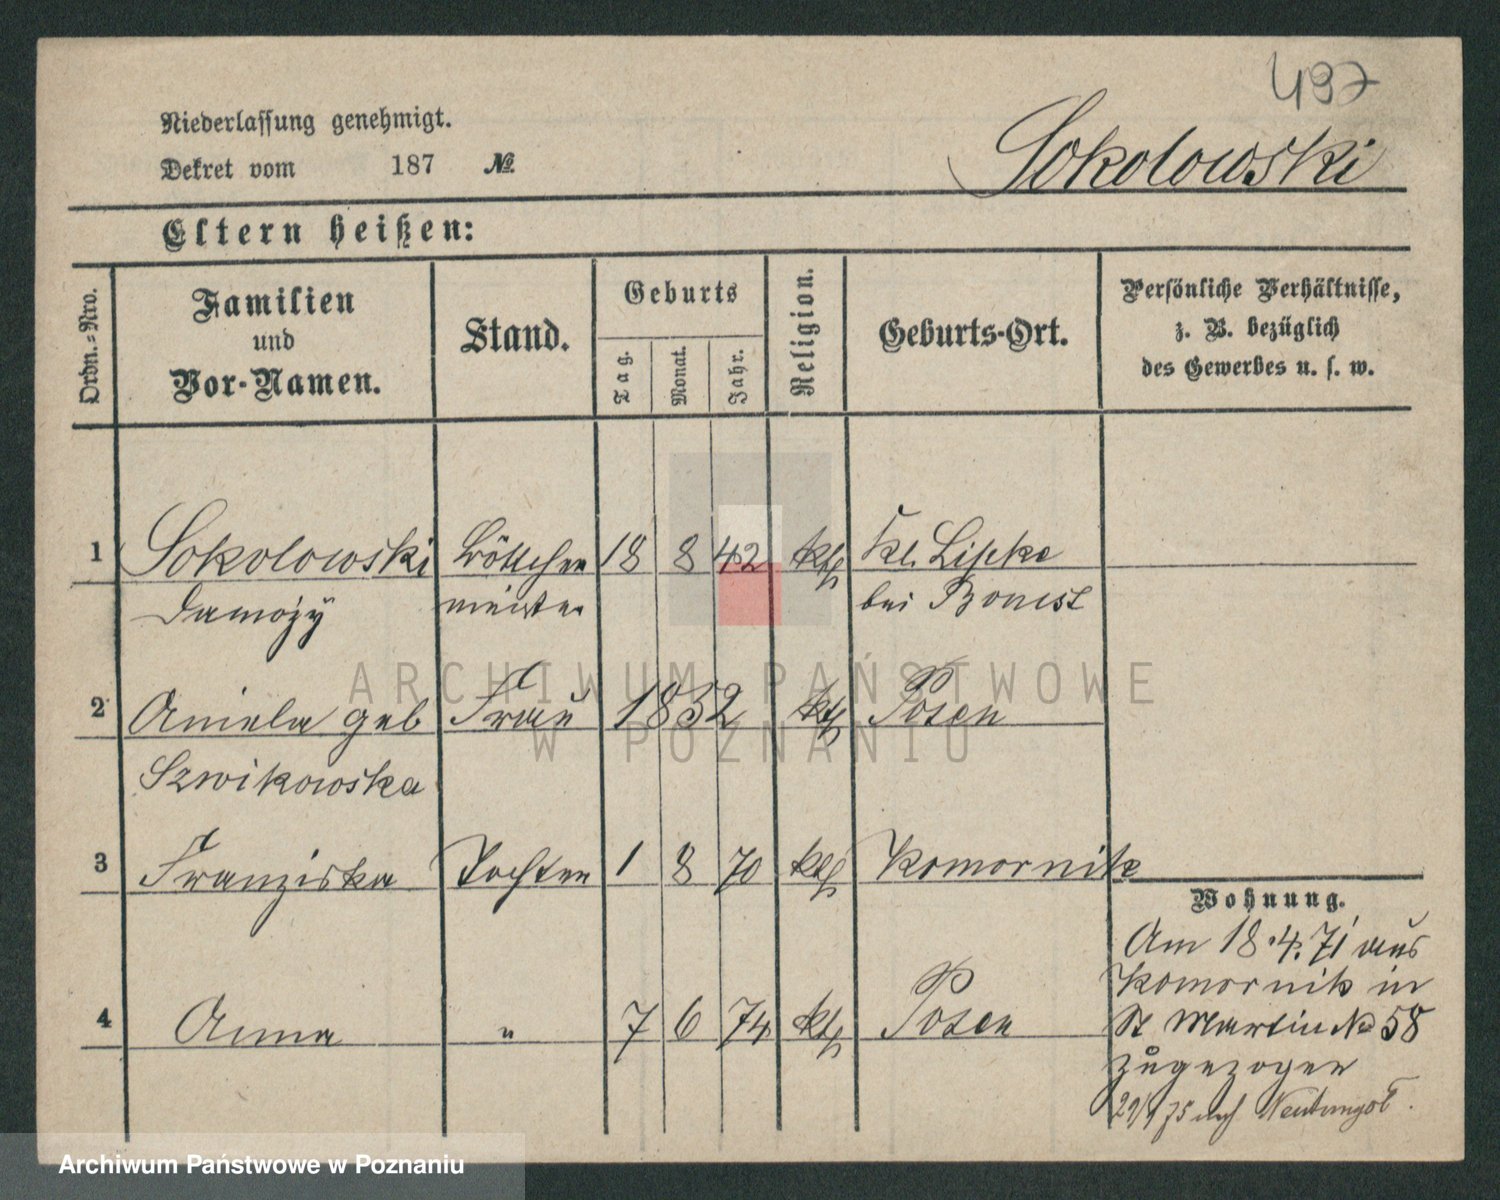 497
Niederlassung genehmigt.
Dekret vom 187 №
Sokolowski
Eltern heißen:
Ordn.-Nro.
Familien und Vor-Namen.
Stand.
Geburts
Tag.
Monat.
Jahr.
Religion.
Geburts-Ort.
Persönliche Verhältnisse,
z. B. bezüglich
des Gewerbes u. s. w.
1 Sokolowski Böttcher 18 8 42 kth Kl. Lipke
Damozy meister bei Bomst
2 Aniela geb Frau 1852 kth Posen
Szwikowska
3 Franziska Tochter 1 8 70 kth Komornik
Wohnung.
Am 18.4.71 aus
Komornik in
4 Anna " 7 6 74 kth Posen
St Martin No 58
zugezogen
29/4 75 nach
ARCHIWUM PAŃSTWOWE
W POZNANIU
Archiwum Państwowe w Poznaniu